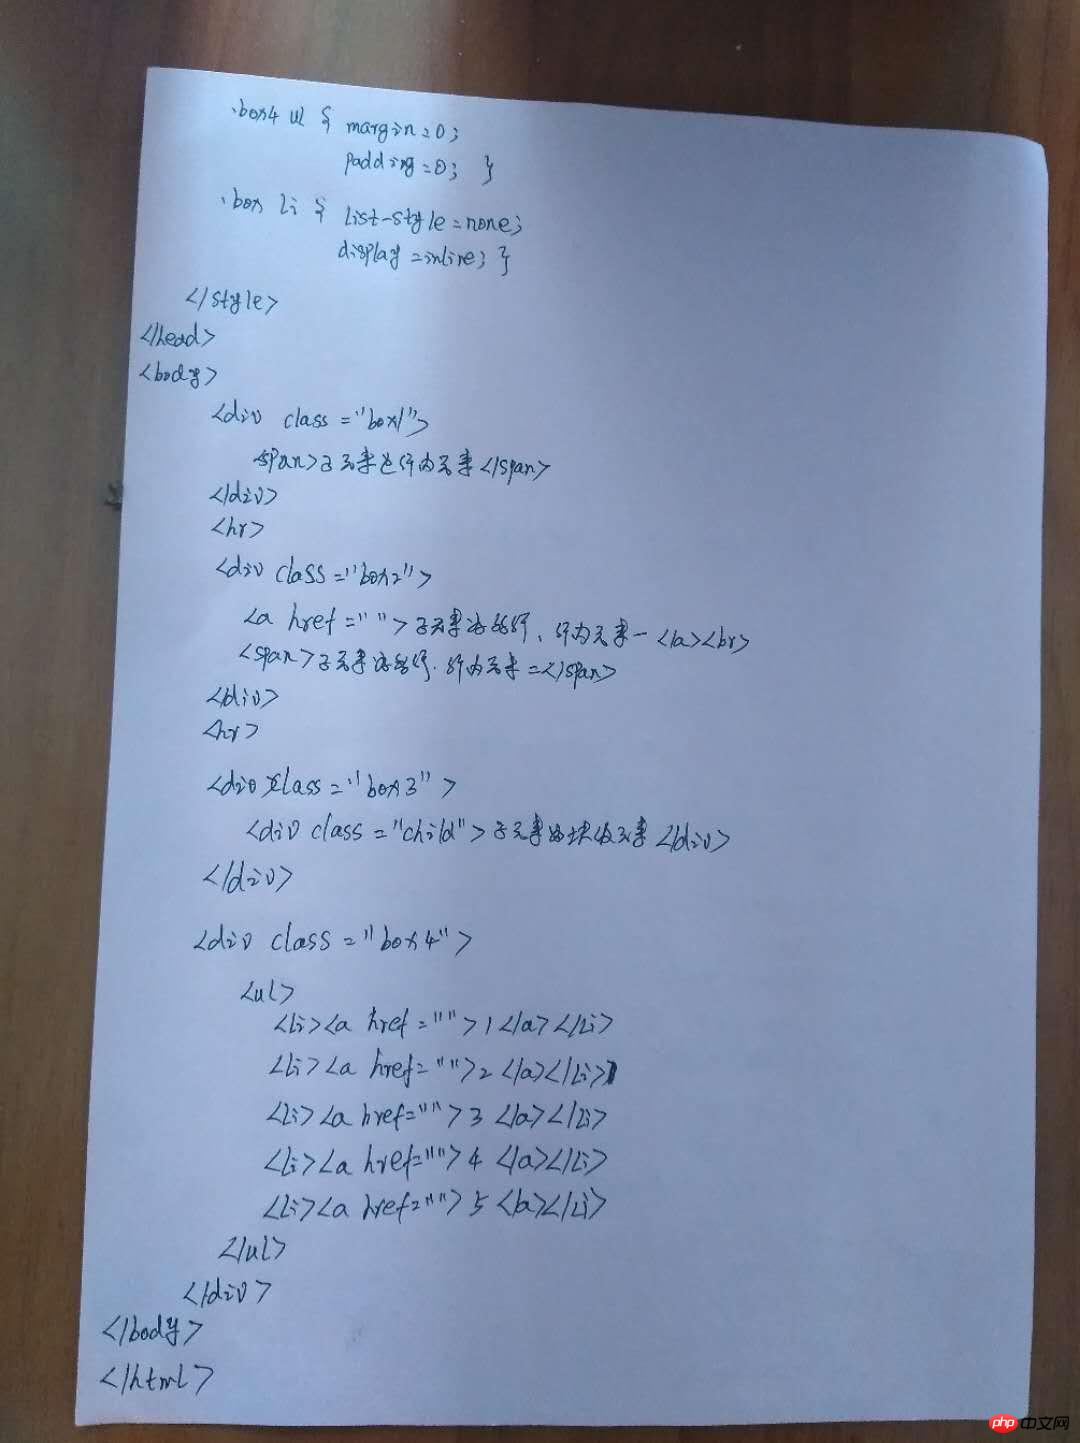 .box4 ul { margin=0;
padding=0; }
.box li { list-style=none;
display=inline; }
</style>
</head>
<body>
<div class="box1">
<span>子元素是行内元素</span>
</div>
<hr>
<div class="box2">
<a href="">子元素为多行、行内元素一</a><br>
<span>子元素为多行、行内元素二</span>
</div>
<hr>
<div class="box3">
<div class="child">子元素为块级元素</div>
</div>
<div class="box4">
<ul>
<li><a href="">1</a></li>
<li><a href="">2</a></li>
<li><a href="">3</a></li>
<li><a href="">4</a></li>
<li><a href="">5</a></li>
</ul>
</div>
</body>
</html>
php 中文网